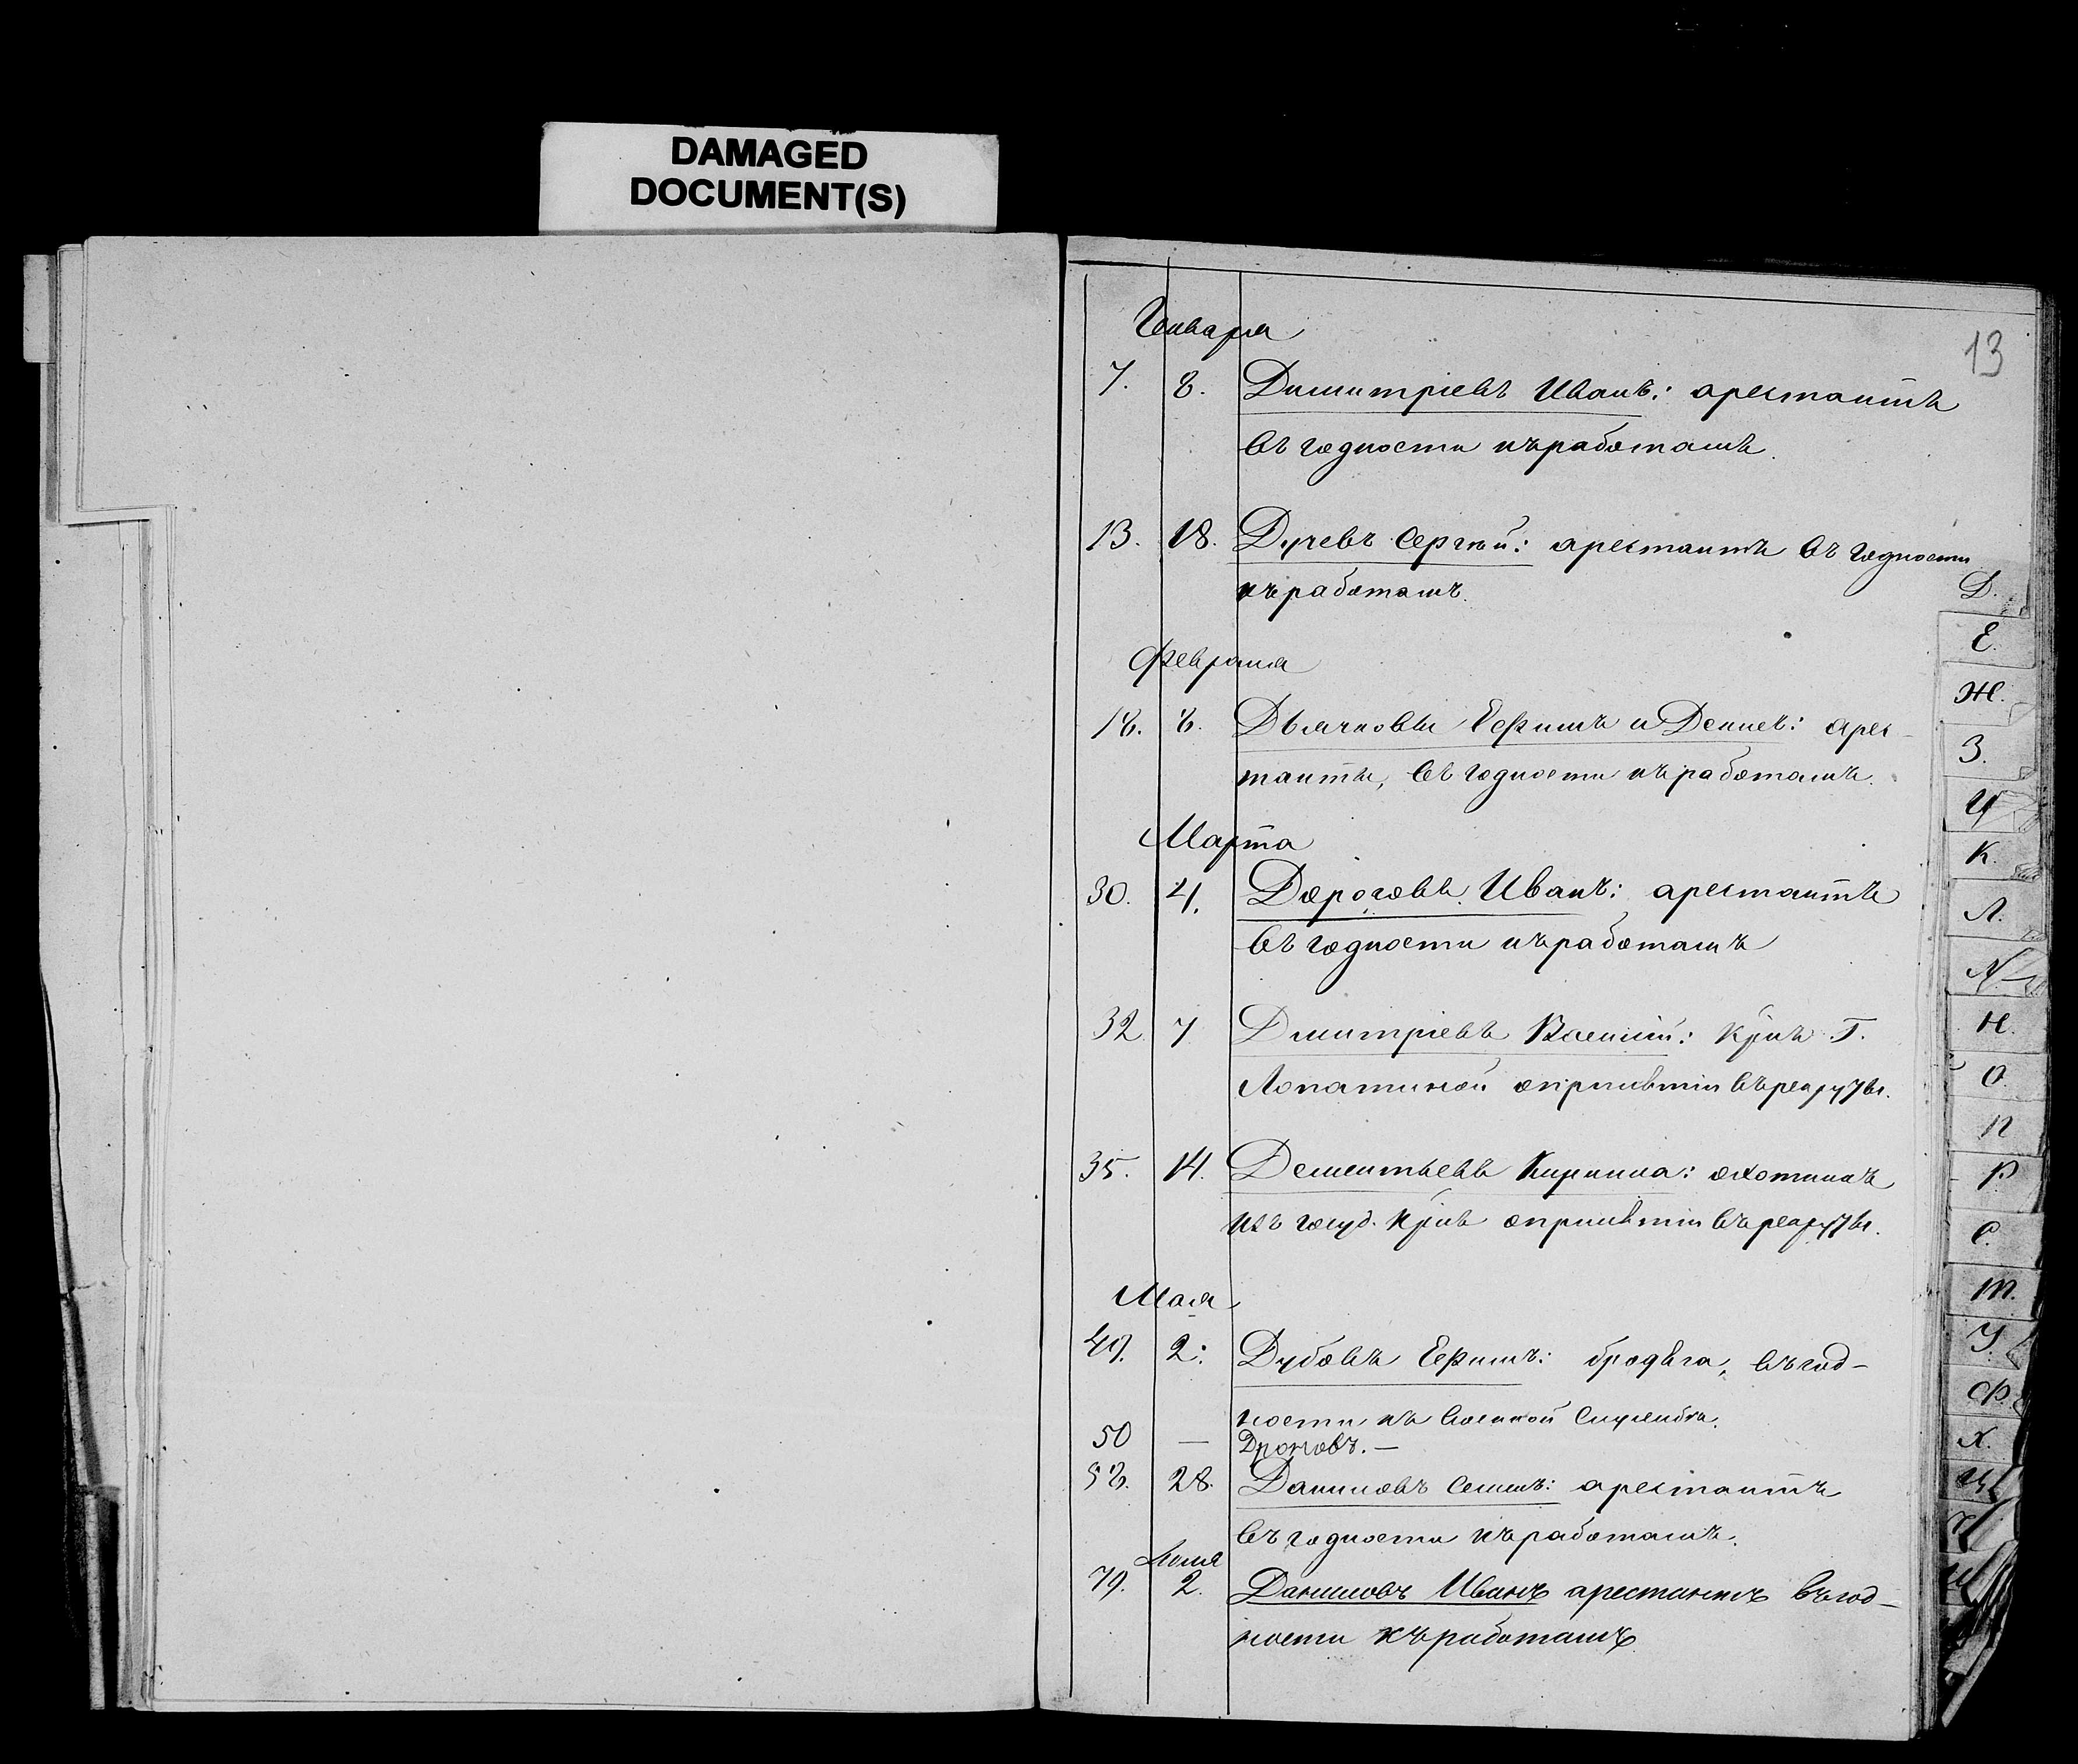 DAMAGED
DOCUMENT(S)
13
Генваря
7. 8. Димитріевъ Иванъ: арестантъ
въ годности къ работамъ.
13. 18. Дучевъ Сергѣй: арестантъ въ годности
къ работамъ.
Февраля
18. 8. Дьячковы Ефимъ и Денисъ: арес-
танты, въ годности къ работамъ.
Марта
30. 4. Дороговъ Иванъ: арестантъ
въ годности къ работамъ
32 7 Дмитріевъ Василій: Кр̃нъ Г.
Лопатиной опринятіи въ рекруты.
35. 14. Дементьевъ Кирила: охотникъ
изъ госуд. Кр̃нъ опринятіи въ рекруты.
Мая
49. 2: Дубовъ Ефимъ: бродяга, въ год-
ности къ военной службѣ.
50 — Дроновъ. —
58. 28. Даниловъ Семенъ: арестантъ
въ годности къ работамъ.
Іюля
79. 2. Даниловъ Иванъ арестантъ въ год-
ности къ работамъ
Д.
Е.
Ж.
З.
И
К.
Л.
Н.
О.
П
Р
С.
Т.
У.
Ф.
Х.
Ц
Ч